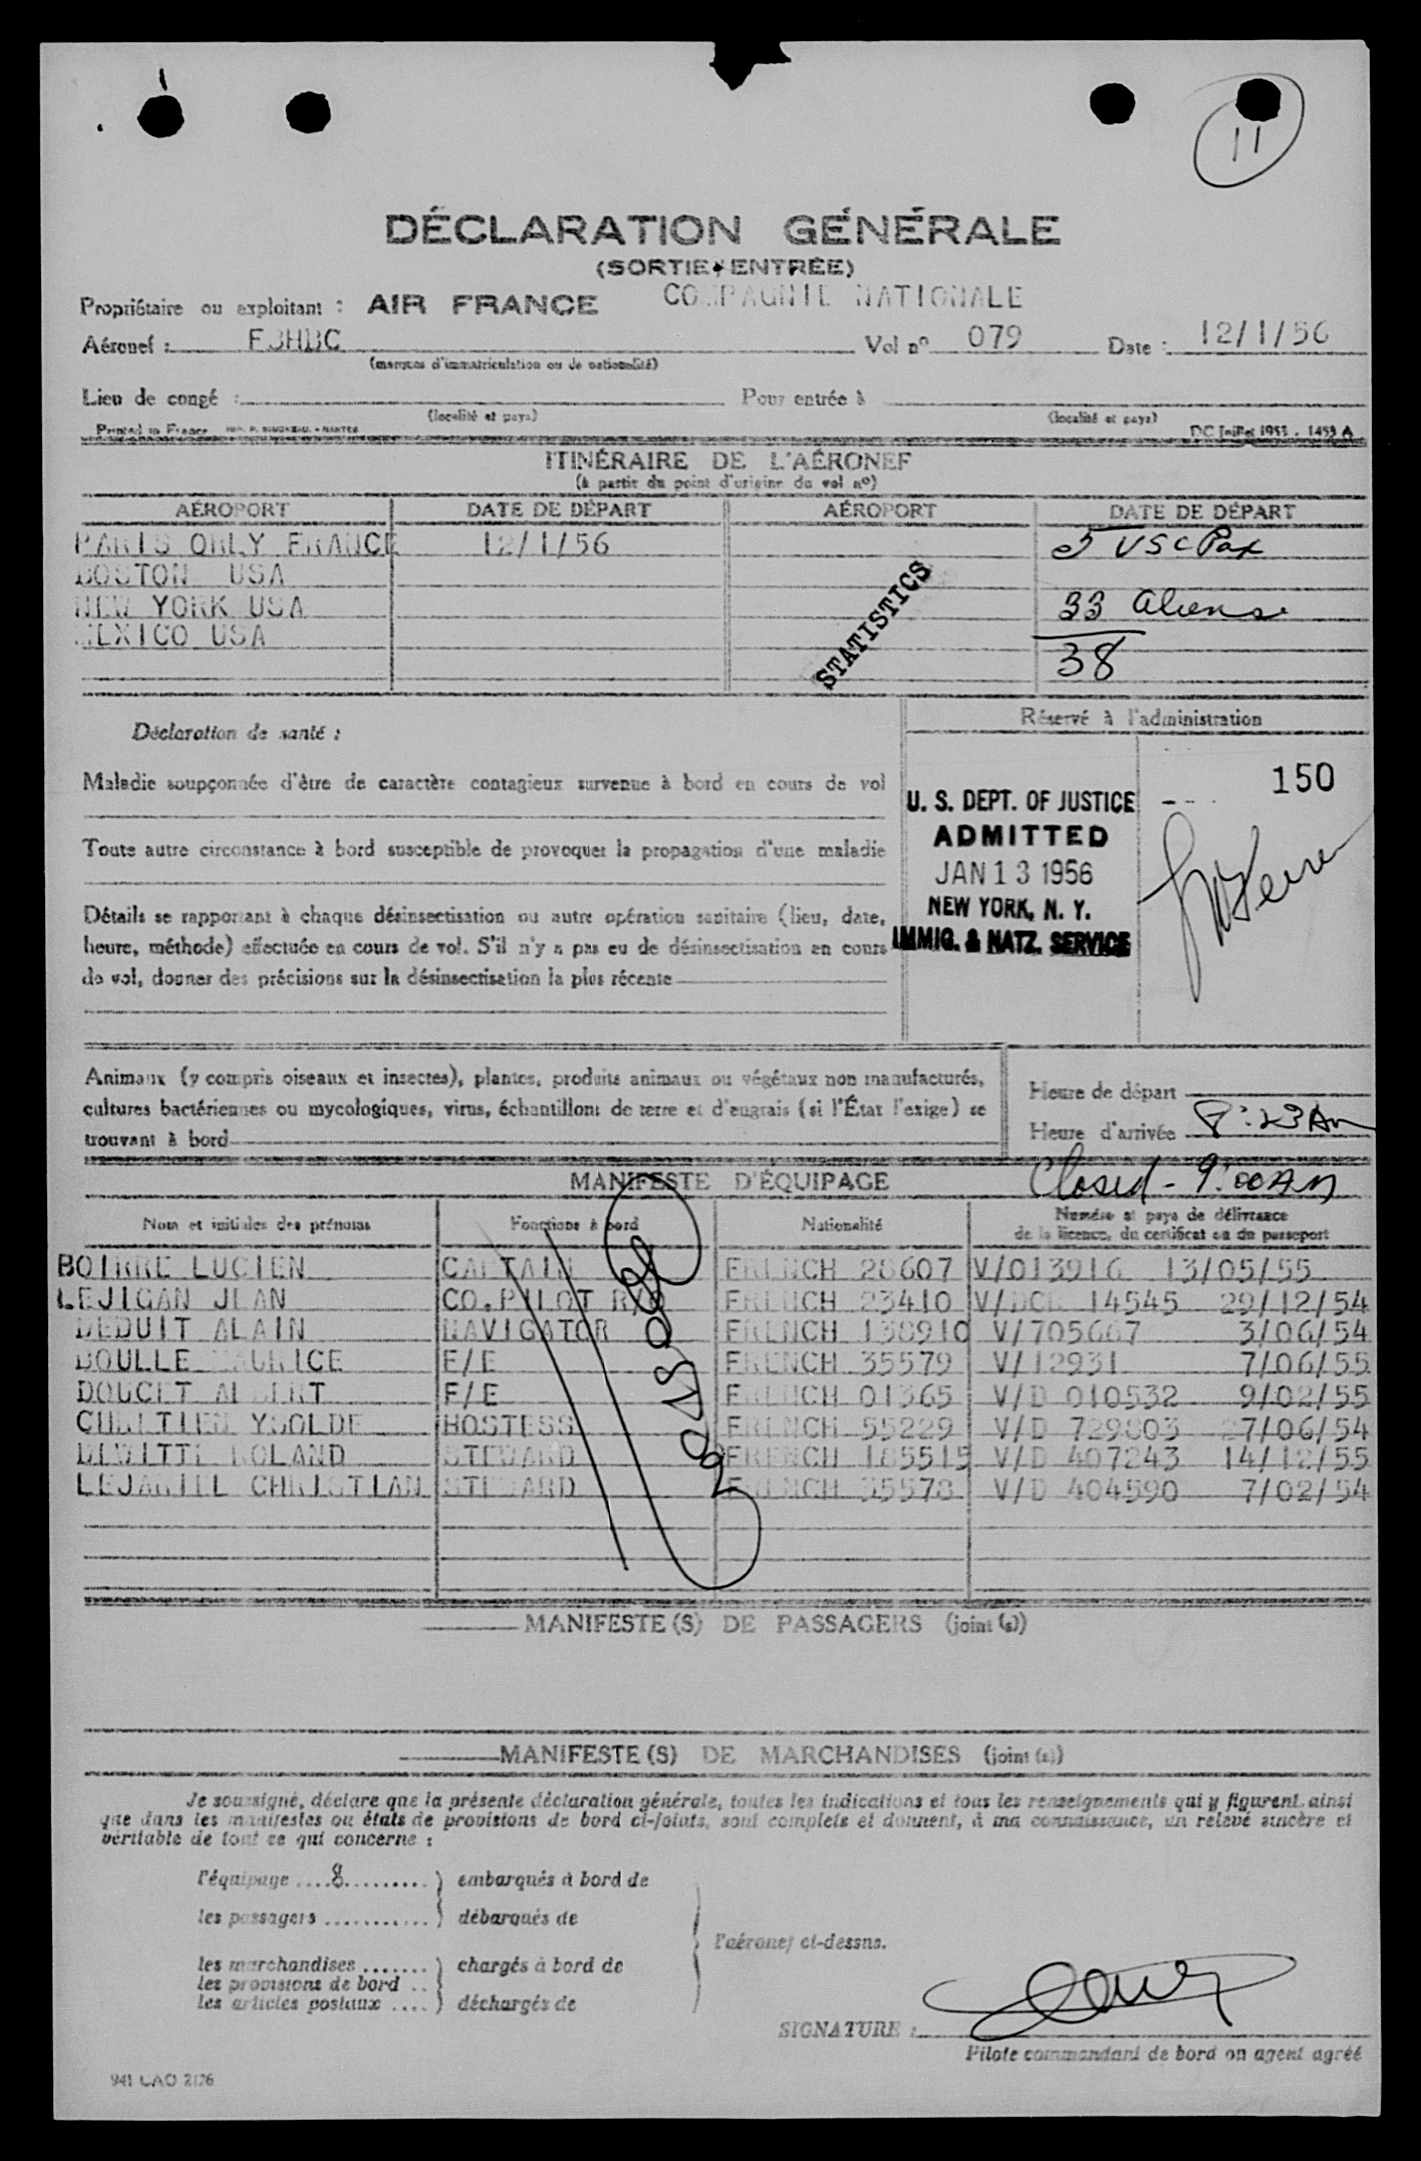 11
DÉCLARATION GÉNÉRALE
(SORTIE ENTRÉE)
Propriétaire ou exploitant : AIR FRANCE COMPAGNIE NATIONALE
Aéronef : Vol nº 079 Date : 12/1/56
(marques d'immatriculation ou de nationalité)
Lieu de congé : Pour entrée à
(localité et pays) (localité et pays)
Printed in France DC Juillet 1953 . 1453 A
ITINÉRAIRE DE L'AÉRONEF
(à partir du point d'origine du vol nº)
AÉROPORT DATE DE DÉPART AÉROPORT DATE DE DÉPART
PARIS ORLY FRANCE 12/1/56 5 USC Pax
BOSTON USA
NEW YORK USA 33 aliens
MEXICO USA 38
STATISTICS
Déclaration de santé : Réservé à l'administration
Maladie soupçonnée d'être de caractère contagieux survenue à bord en cours de vol
Toute autre circonstance à bord susceptible de provoquer la propagation d'une maladie
Détails se rapportant à chaque désinsectisation ou autre opération sanitaire (lieu, date,
heure, méthode) effectuée en cours de vol. S'il n'y a pas eu de désinsectisation en cours
de vol, donner des précisions sur la désinsectisation la plus récente
150
U. S. DEPT. OF JUSTICE
ADMITTED
JAN 13 1956
NEW YORK, N. Y.
IMMIG. & NATZ. SERVICE
Animaux (y compris oiseaux et insectes), plantes, produits animaux ou végétaux non manufacturés,
cultures bactériennes ou mycologiques, virus, échantillons de terre et d'engrais (si l'État l'exige) se
trouvant à bord
Heure de départ
Heure d'arrivée 8:23 Am
Closed - 9:00 AM
MANIFESTE D'ÉQUIPAGE
Nom et initiales des prénoms Fonctions à bord Nationalité Numéro et pays de délivrance
de la licence, du certificat ou du passeport
LUCIEN CAPTAIN FRENCH 28607 V/013916 13/05/55
LEJIGAN JEAN CO.PILOT FRENCH 23410 14545 29/12/54
DEDUIT ALAIN NAVIGATOR FRENCH 138910 V/705667 3/06/54
BOULLE MAURICE F/E FRENCH 35579 V/12931 7/06/55
DOUCET ALBERT F/E FRENCH 01365 V/D 010532 9/02/55
CHRETIEN YSOLDE HOSTESS FRENCH 55229 V/D 729803 27/06/54
ROLAND STEWARD FRENCH 185515 V/D 407243 14/12/55
CHRISTIAN STEWARD FRENCH 35578 V/D 404590 7/02/54
MANIFESTE(S) DE PASSAGERS (joint (s))
MANIFESTE(S) DE MARCHANDISES (joint (s))
Je soussigné, déclare que la présente déclaration générale, toutes les indications et tous les renseignements qui y figurent ainsi
que dans les manifestes ou états de provisions de bord ci-joints, sont complets et donnent, à ma connaissance, un relevé sincère et
véritable de tout ce qui concerne :
l'équipage ....8......... ) embarqués à bord de
les passagers ............ ) débarqués de
l'aéronef ci-dessus.
les marchandises ....... ) chargés à bord de
les provisions de bord ..
les articles postaux .... ) déchargés de
SIGNATURE :
Pilote commandant de bord ou agent agréé
941 CAO 2176